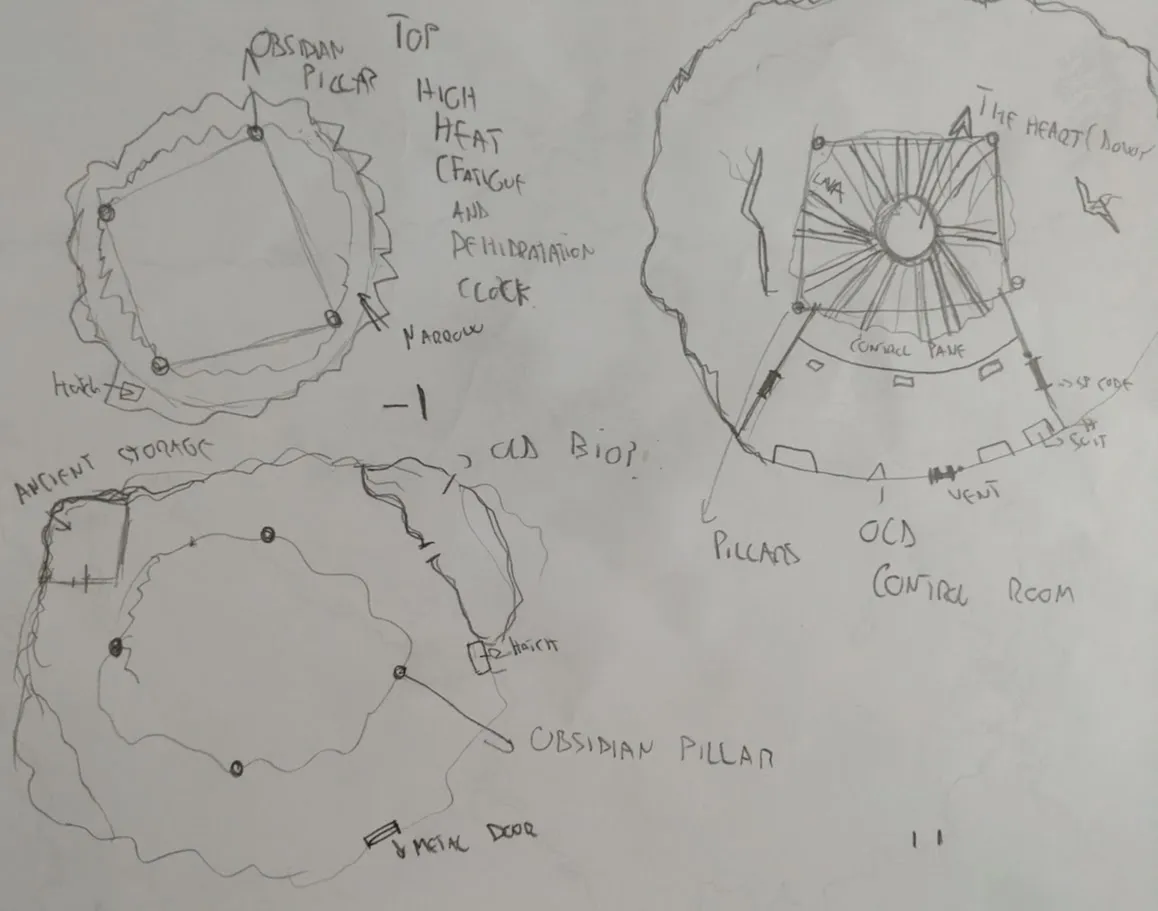 OBSIDIAN
PILLAR
TOP
HIGH
HEAT
(FATIGUE
AND
DEHIDRATATION
CLOCK
NARROW
Hatch
-1
ANCIENT STORAGE
OLD
HATCH
OBSIDIAN PILLAR
METAL DOOR
THE HEART (DOWN
LAVA
CONTROL PANE
CODE
SUIT
VENT
PILLARS
OLD
CONTROL ROOM